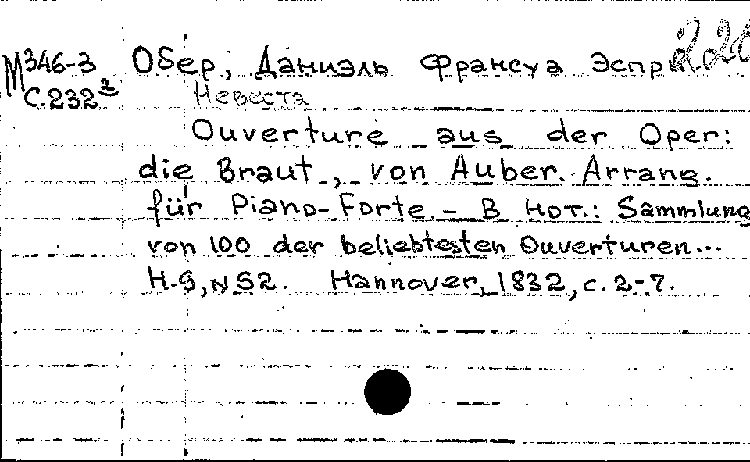 М346-3 Обер, Даниэль Франсуа Эспри
С.232² Невеста
Ouverture aus der Oper:
die Braut, von Auber. Arrang.
für Piano-Forte – В нот.: Sammlung
von 100 der beliebtesten Ouverturen...
H.9, N52. Hannover, 1832, с. 2-7.